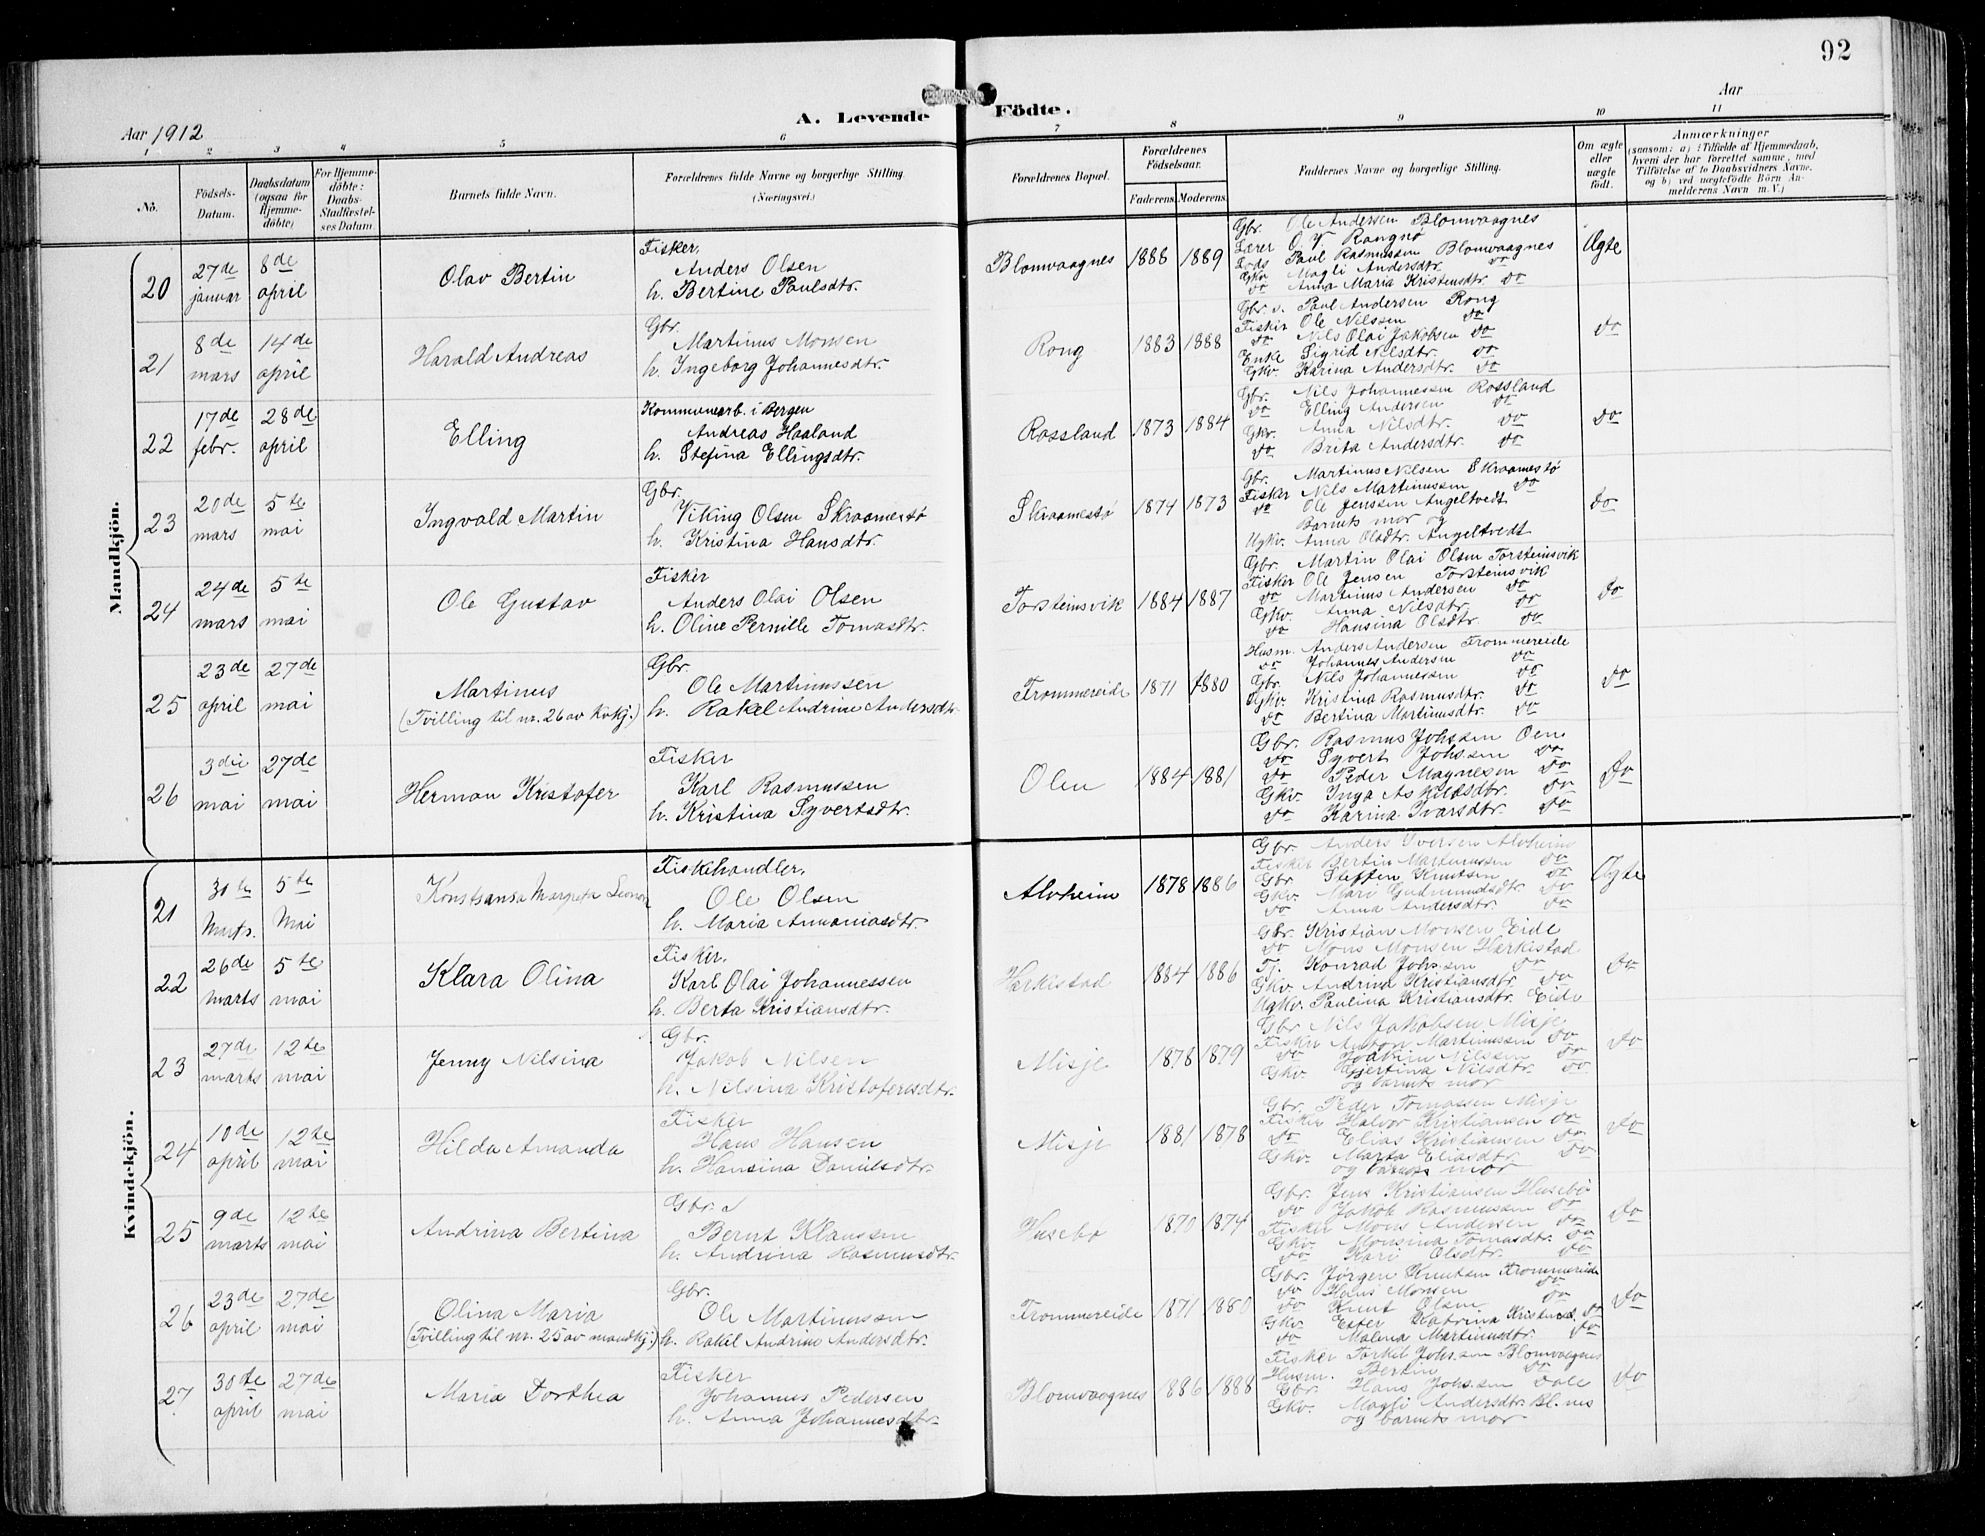 92
A. Levende Födte.
Aar 1912
Aar
1 2 3 4 5 6 7 8 9 10 11
No.
Födsels-Datum.
Daabsdatum (ogsaa for Hjemmedöbte)
For Hjemmedöbte: Daabs-Stadfestelses Datum.
Barnets fulde Navn.
Forældrenes fulde Navne og borgerlige Stilling.
(Næringsvei.)
Forældrenes Bopæl.
Forældrenes Födselsaar.
Faderens Moderens
Faddernes Navne og borgerlige Stilling.
Om ægte eller uægte födt.
Anmærkninger
(saasom: a) i Tilfælde af Hjemmedaab, hvem der har forrettet samme, med Tilföielse af to Daabsvidners Navne, og b) ved uægtefödte Börn Anmelderens Navn m. V.)
Mandkjön.
20 27de januar 8de april
Olav Bertin
Fisker,
Anders Olsen
h. Bertine Paulsdtr.
Blomvaagnes 1888 1889
Gbr. Ole Andersen Blomvaagnes
Lærer O. Y. Rongnø
Lods Paul Rasmussen Blomvaagnes
Gkv Magli Andersdtr do
do Anna Maria Kristensdtr do
Ægte
21 8de mars 14de april
Harald Andreas
Gbr.
Martinus Monsen
h. Ingeborg Johannesdtr.
Rong 1883 1888
Gbr. s. Paul Andersen Rong
Fisker Ole Nilssen do
do Nils Olai Jakobsen do
Enke Sigrid Nilsdtr. do
Gkv. Karina Andersdtr. do
do
22 17de febr. 28de april
Elling
Kommunearb. i Bergen
Andreas Haaland
h. Stefina Ellingsdtr.
Rossland 1873 1884
Gbr. Nils Johannessen Rossland
do Elling Andersen do
Gkv. Anna Nilsdtr. do
do Brita Andersdtr. do
do
23 20de mars 5te mai
Ingvald Martin
Gbr.
Viking Olsen Skraamestø
h. Kristina Hansdtr.
Skraamestø 1874 1873
Gbr. Martinus Nilsen Skraamestø
Fisker Nils Martinussen do
do Ole Jenssen Angeltvedt
Barnets mor og
Ugkv. Anna Olsdtr. Angeltvedt
do
24 24de mars 5te mai
Ole Gustav
Fisker
Anders Olai Olsen
h. Oline Pernille Tomasdtr.
Torsteinsvik 1884 1887
Gbr. Martin Olai Olsen Torsteinsvik
Fisker Ole Jensen Torsteinsvik
do Martinus Andersen do
Gkv. Anna Nilsdtr. do
do Hansina Olsdtr. do
do
25 23de april 27de mai
Martinus
(Tvilling til nr. 26 av kvkj.)
Gbr.
Ole Martinussen
h. Rakel Andrine Andersdtr
Frommereide 1871 1880
Husm. Anders Andersen Frommereide
do Johannes Andersen do
Gbr. Nils Johannessen do
Ugkv. Kristina Rasmusdtr. do
do Bertina Martinusdtr. do
do
26 3die mai 27de mai
Herman Kristofer
Fisker
Karl Rasmussen
h. Kristina Syvertsdtr.
Olen 1884 1881
Gbr. Rasmus Johssen Oen
do Syvert Johssen do
do Peder Magnesen do
Gkv. Inga Askildsdtr. do
do Karina Ivarsdtr. do
do
Kvindekjön.
21 30te Marts. 5te Mai
Konstansa Margreta Leonora
Fiskehandler,
Ole Olsen
h. Maria Annaniasdtr.
Alvheim 1878 1886
Gbr Anders Iversen Alvheim
Fisker Bertin Martinussen do
Gbr Steffen Knutsen do
Gkv. Mari Gudmundsdtr do
do Anna Andersdtr. do
Ægte
22 26de marts 5te mai
Klara Olina
Fisker.
Karl Olai Johannessen
h. Berta Kristiansdtr.
Herkistad 1884 1886
Gbr. Kristian Monsen Eide
do Mons Monsen Herkistad
Tj. Konrad Johssen do
Gkv. Andrina Kristiansdtr. do
Ugkv. Paulina Kristiansdtr. Eide
do
23 27de marts 12te mai
Jenny Nilsina
Gbr.
Jakob Nilsen
h. Nilsina Kristofersdtr.
Misje 1878 1879
Gbr Nils Jakobsen Misje
Fisker Anton Martinussen do
do Joakim Nilssen do
Gkv. Gjertina Nilsdtr. do
og barnets mor
do
24 10de april 12te mai
Hilda Amanda
Fisker
Hans Hansen
h. Hansina Danielsdtr.
Misje 1881 1878
Gbr. Peder Tomassen Misje
Fisker Halvor Kristiansen do
do Elias Kristiansen do
Gkv. Marta Eliasdtr. do
og barnets mor
do
25 9de marts 12te mai
Andrina Bertina
Gbr. s
Bernt Klaussen
h. Andrina Rasmusdtr.
Husebø 1870 1874
Gbr. Jens Kristiansen Husebø
do Jakob Rasmussen do
Fisker Mons Andersen do
Gkv. Monsina Tomasdtr. do
do Kari Olsdtr. do
do
26 23de april 27de mai
Olina Maria
(Tvilling til nr. 25 av mandkj.)
Gbr.
Ole Martinussen
h. Rakel Andrine Andersdtr.
Frommereide 1871 1880
Gbr. Jørgen Knutsen Frommereide
do Hans Monsen do
do Knut Olsen do
Gkv. Ester Katrina Kristensd. do
do Malena Martinusdtr. do
do
27 30te april 27de mai
Maria Dorthea
Fisker
Johannes Pedersen
h. Anna Johannesdtr.
Blomvaagnes 1886 1888
Fisker Torkel Johssen Blomvaagnes
Husm. Bertin do
Gbr. Hans Johssen Dale
Gkv. Magli Andersdtr. Bl.nes
og barnets mor
do